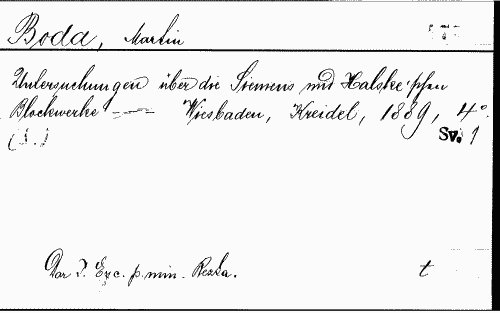 Boda, Martin
Untersuchungen über die Siemens und Halske'schen
Blockwerke — Wiesbaden, Kreidel, 1889, 4°.
(S.) Sv. 1
Dar J. Exc. p. min. Rezka. t